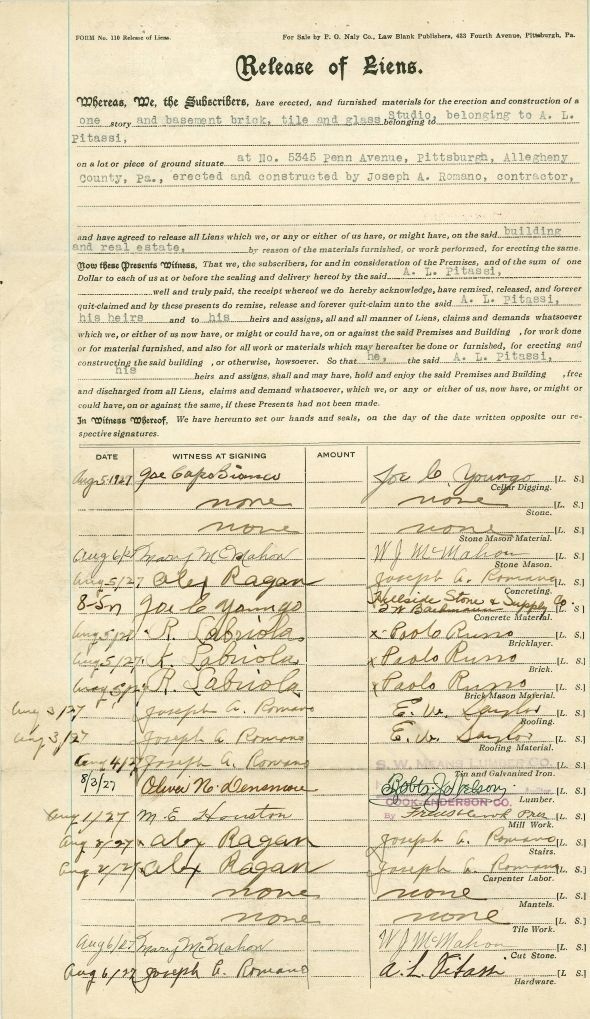 FORM No. 110 Release of Liens. For Sale by P. O. Naly Co., Law Blank Publishers, 423 Fourth Avenue, Pittsburgh, Pa.
Release of Liens.
Whereas, We, the Subscribers, have erected, and furnished materials for the erection and construction of a
one story and basement brick, tile and glass Studio, belonging to belonging to A. L.
Pitassi,
on a lot or piece of ground situate at No. 5345 Penn Avenue, Pittsburgh, Allegheny
County, Pa., erected and constructed by Joseph A. Romano, contractor,
and have agreed to release all Liens which we, or any or either of us have, or might have, on the said building
and real estate, by reason of the materials furnished, or work performed, for erecting the same.
Now these Presents Witness, That we, the subscribers, for and in consideration of the Premises, and of the sum of one
Dollar to each of us at or before the sealing and delivery hereof by the said A. L. Pitassi,
well and truly paid, the receipt whereof we do hereby acknowledge, have remised, released, and forever
quit-claimed and by these presents do remise, release and forever quit-claim unto the said A. L. Pitassi,
his heirs and to his heirs and assigns, all and all manner of Liens, claims and demands whatsoever
which we, or either of us now have, or might or could have, on or against the said Premises and Building , for work done
or for material furnished, and also for all work or materials which may hereafter be done or furnished, for erecting and
constructing the said building , or otherwise, howsoever. So that he, the said A. L. Pitassi,
his heirs and assigns, shall and may have, hold and enjoy the said Premises and Building , free
and discharged from all Liens, claims and demands whatsoever, which we, or any or either of us, now have, or might or
could have, on or against the same, if these Presents had not been made.
In Witness Whereof, We have hereunto set our hands and seals, on the day of the date written opposite our re-
spective signatures.
DATE WITNESS AT SIGNING AMOUNT
Aug 5 1927 Joe Capo Bianco Joe C. Youngo [L. S.]
Cellar Digging.
none none [L. S.]
Stone.
none none [L. S.]
Stone Mason Material.
Aug 6/27 Mary McMahon W J McMahon [L. S.]
Stone Mason.
Aug 5/27 Alex Ragan Joseph A. Romano [L. S.]
Concreting.
8-5-27 Joe C Youngo Hillside Stone & Supply Co. [L. S.]
Concrete Material.
Aug 5/27 R. Labriola x Paolo Russo [L. S.]
Bricklayer.
Aug 5/27 R. Labriola x Paolo Russo [L. S.]
Brick.
Aug 5/27 R. Labriola x Paolo Russo [L. S.]
Brick Mason Material.
Aug 3/27 Joseph A. Romano E. W. Saylor [L. S.]
Roofing.
Aug 3/27 Joseph A. Romano E. W. Saylor [L. S.]
Roofing Material.
Aug 4/27 Joseph A. Romano S. W. MEANS LUMBER CO. [L. S.]
Tin and Galvanized Iron.
8/3/27 Oliver N. Densmore [L. S.]
Lumber.
COOK-ANDERSON CO.
Aug 1/27 M. E. Houston By [L. S.]
Mill Work.
Aug 2/27 x Alex Ragan Joseph A. Romano [L. S.]
Stairs.
Aug 2/27 x Alex Ragan Joseph A. Romano [L. S.]
Carpenter Labor.
none none [L. S.]
Mantels.
none none [L. S.]
Tile Work.
Aug 6/27 Mary McMahon W J McMahon [L. S.]
Cut Stone.
Aug 6/27 Joseph A. Romano A. L. Pitassi [L. S.]
Hardware.